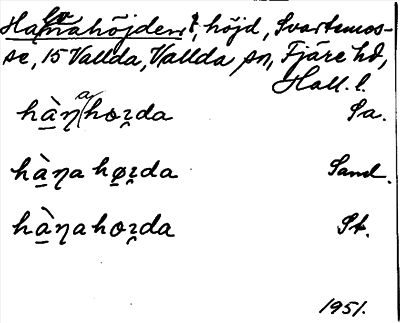 Hannahöjden, höjd, Svartemos-
se, 15 Vallda, Vallda sn, Fjäre hd,
Hall. l.
hàŋahœɽda Sa.
hàŋa høɽda Sand.
hàŋahoɽda St.
1951.